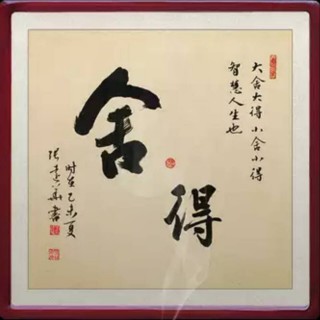 大舍大得小舍小得
智慧人生也
舍
得
时在乙未夏